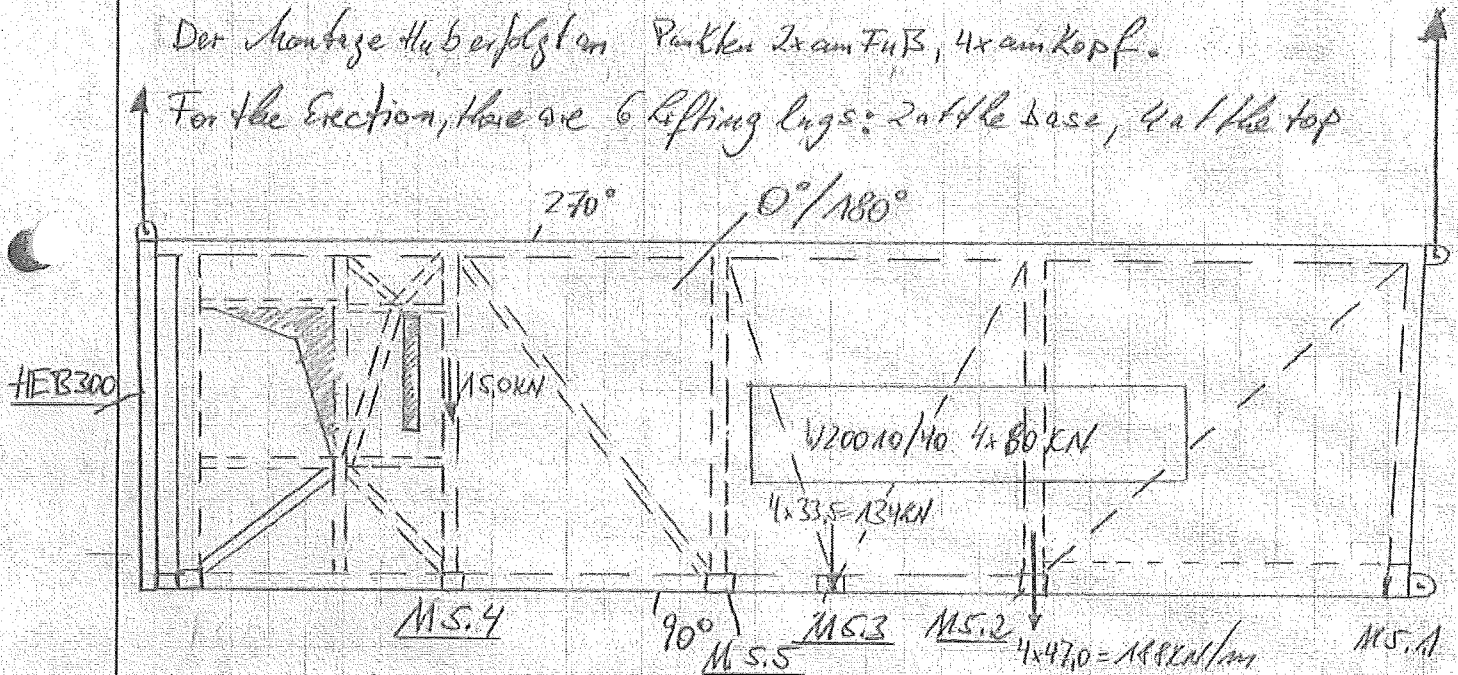 Der Montage Hub erfolgt an Punkten 2x am Fuß, 4x am Kopf.
For the Erection, there are 6 lifting lugs: 2 at the base, 4 at the top
270°
0°/180°
HEB300
15,0KN
4x80 KN
4x33,5=134KN
M5.4
90°
M5.5
M5.3
M5.2
4x47,0=188KN/m
M5.1